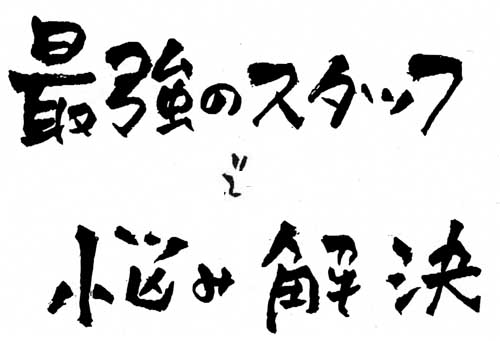 最強のスタッフ
で
悩み解決